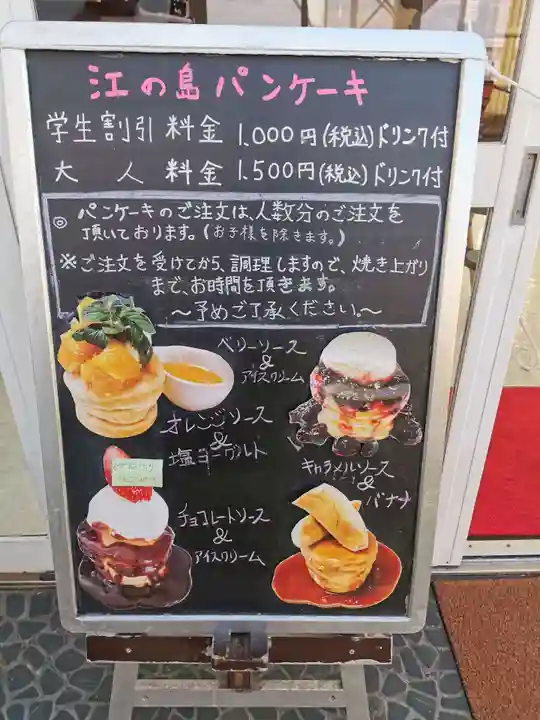 江の島パンケーキ
学生割引 料金 1,000円(税込)ドリンク付
大人 料金 1,500円(税込)ドリンク付
◎ パンケーキのご注文は、人数分のご注文を
頂いております。(お子様を除きます。)
※ご注文を受けてから、調理しますので、焼き上がり
まで、お時間を頂きます。
～予めご了承ください。～
ベリーソース
&
アイスクリーム
オレンジソース
&
塩ヨーグルト
キャラメルソース
&
バナナ
チョコレートソース
&
アイスクリーム